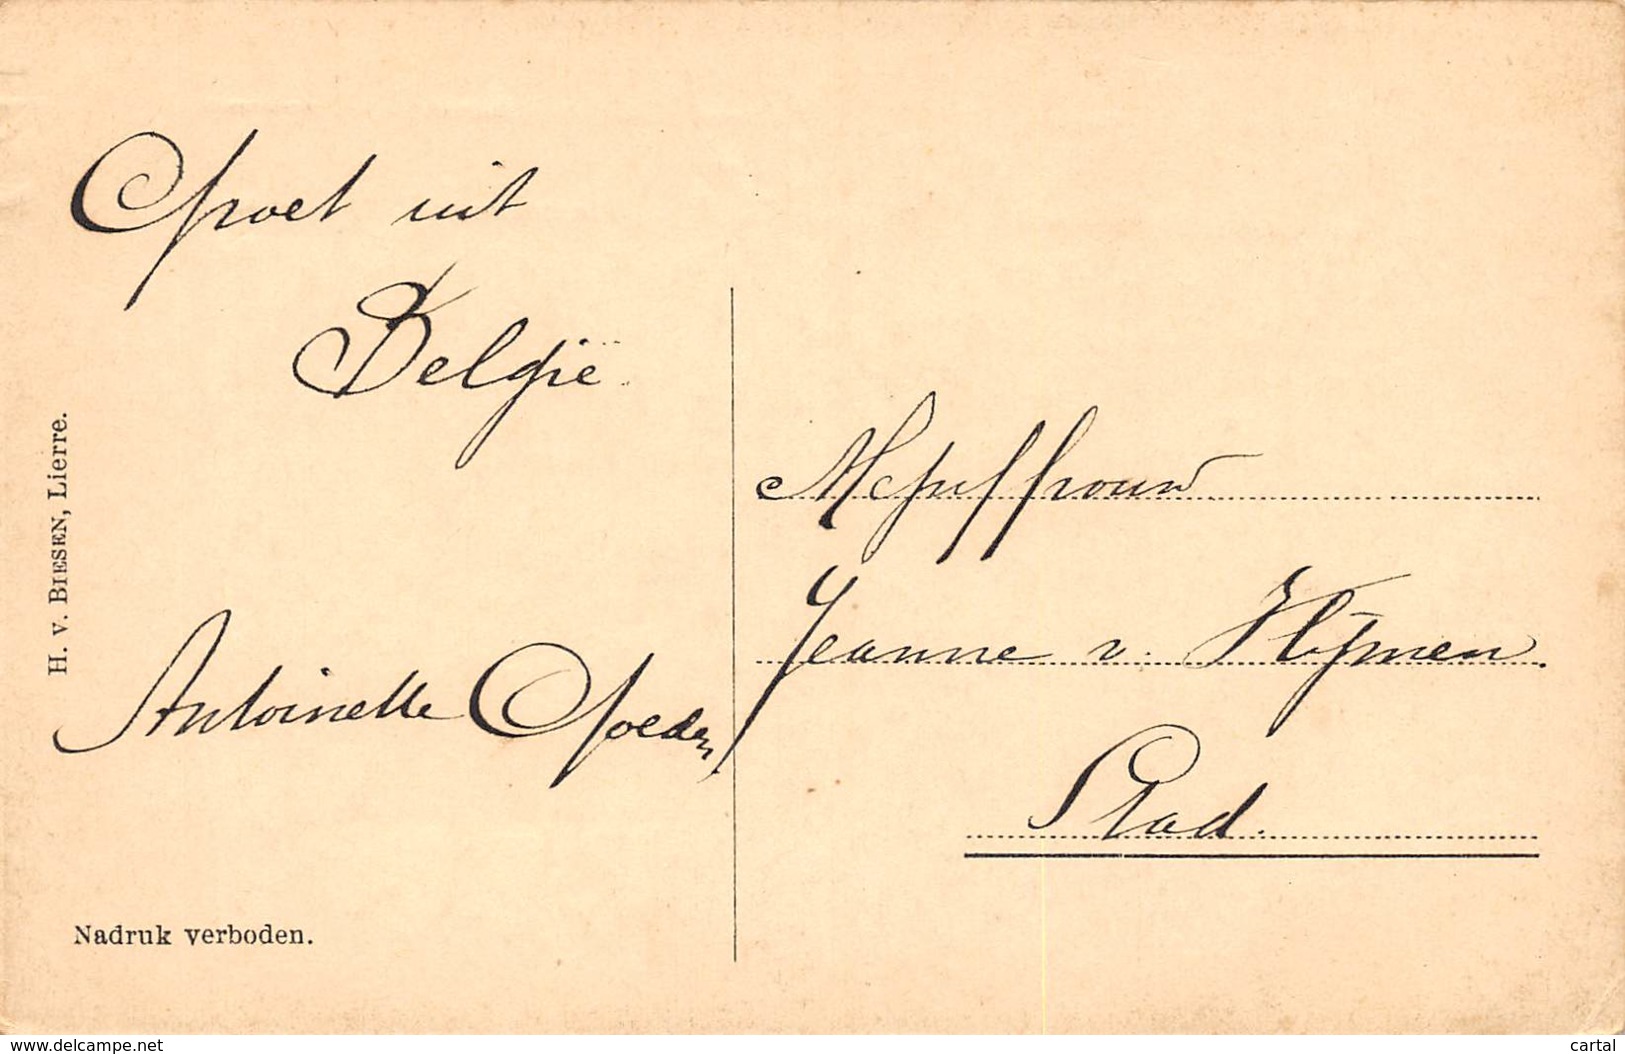 Groet uit
België.
Antoinette
H. v. BIESEN, Lierre.
Nadruk verboden.
Mejuffrouw
Jeanne v.
Stad.
www.delcampe.net
cartal